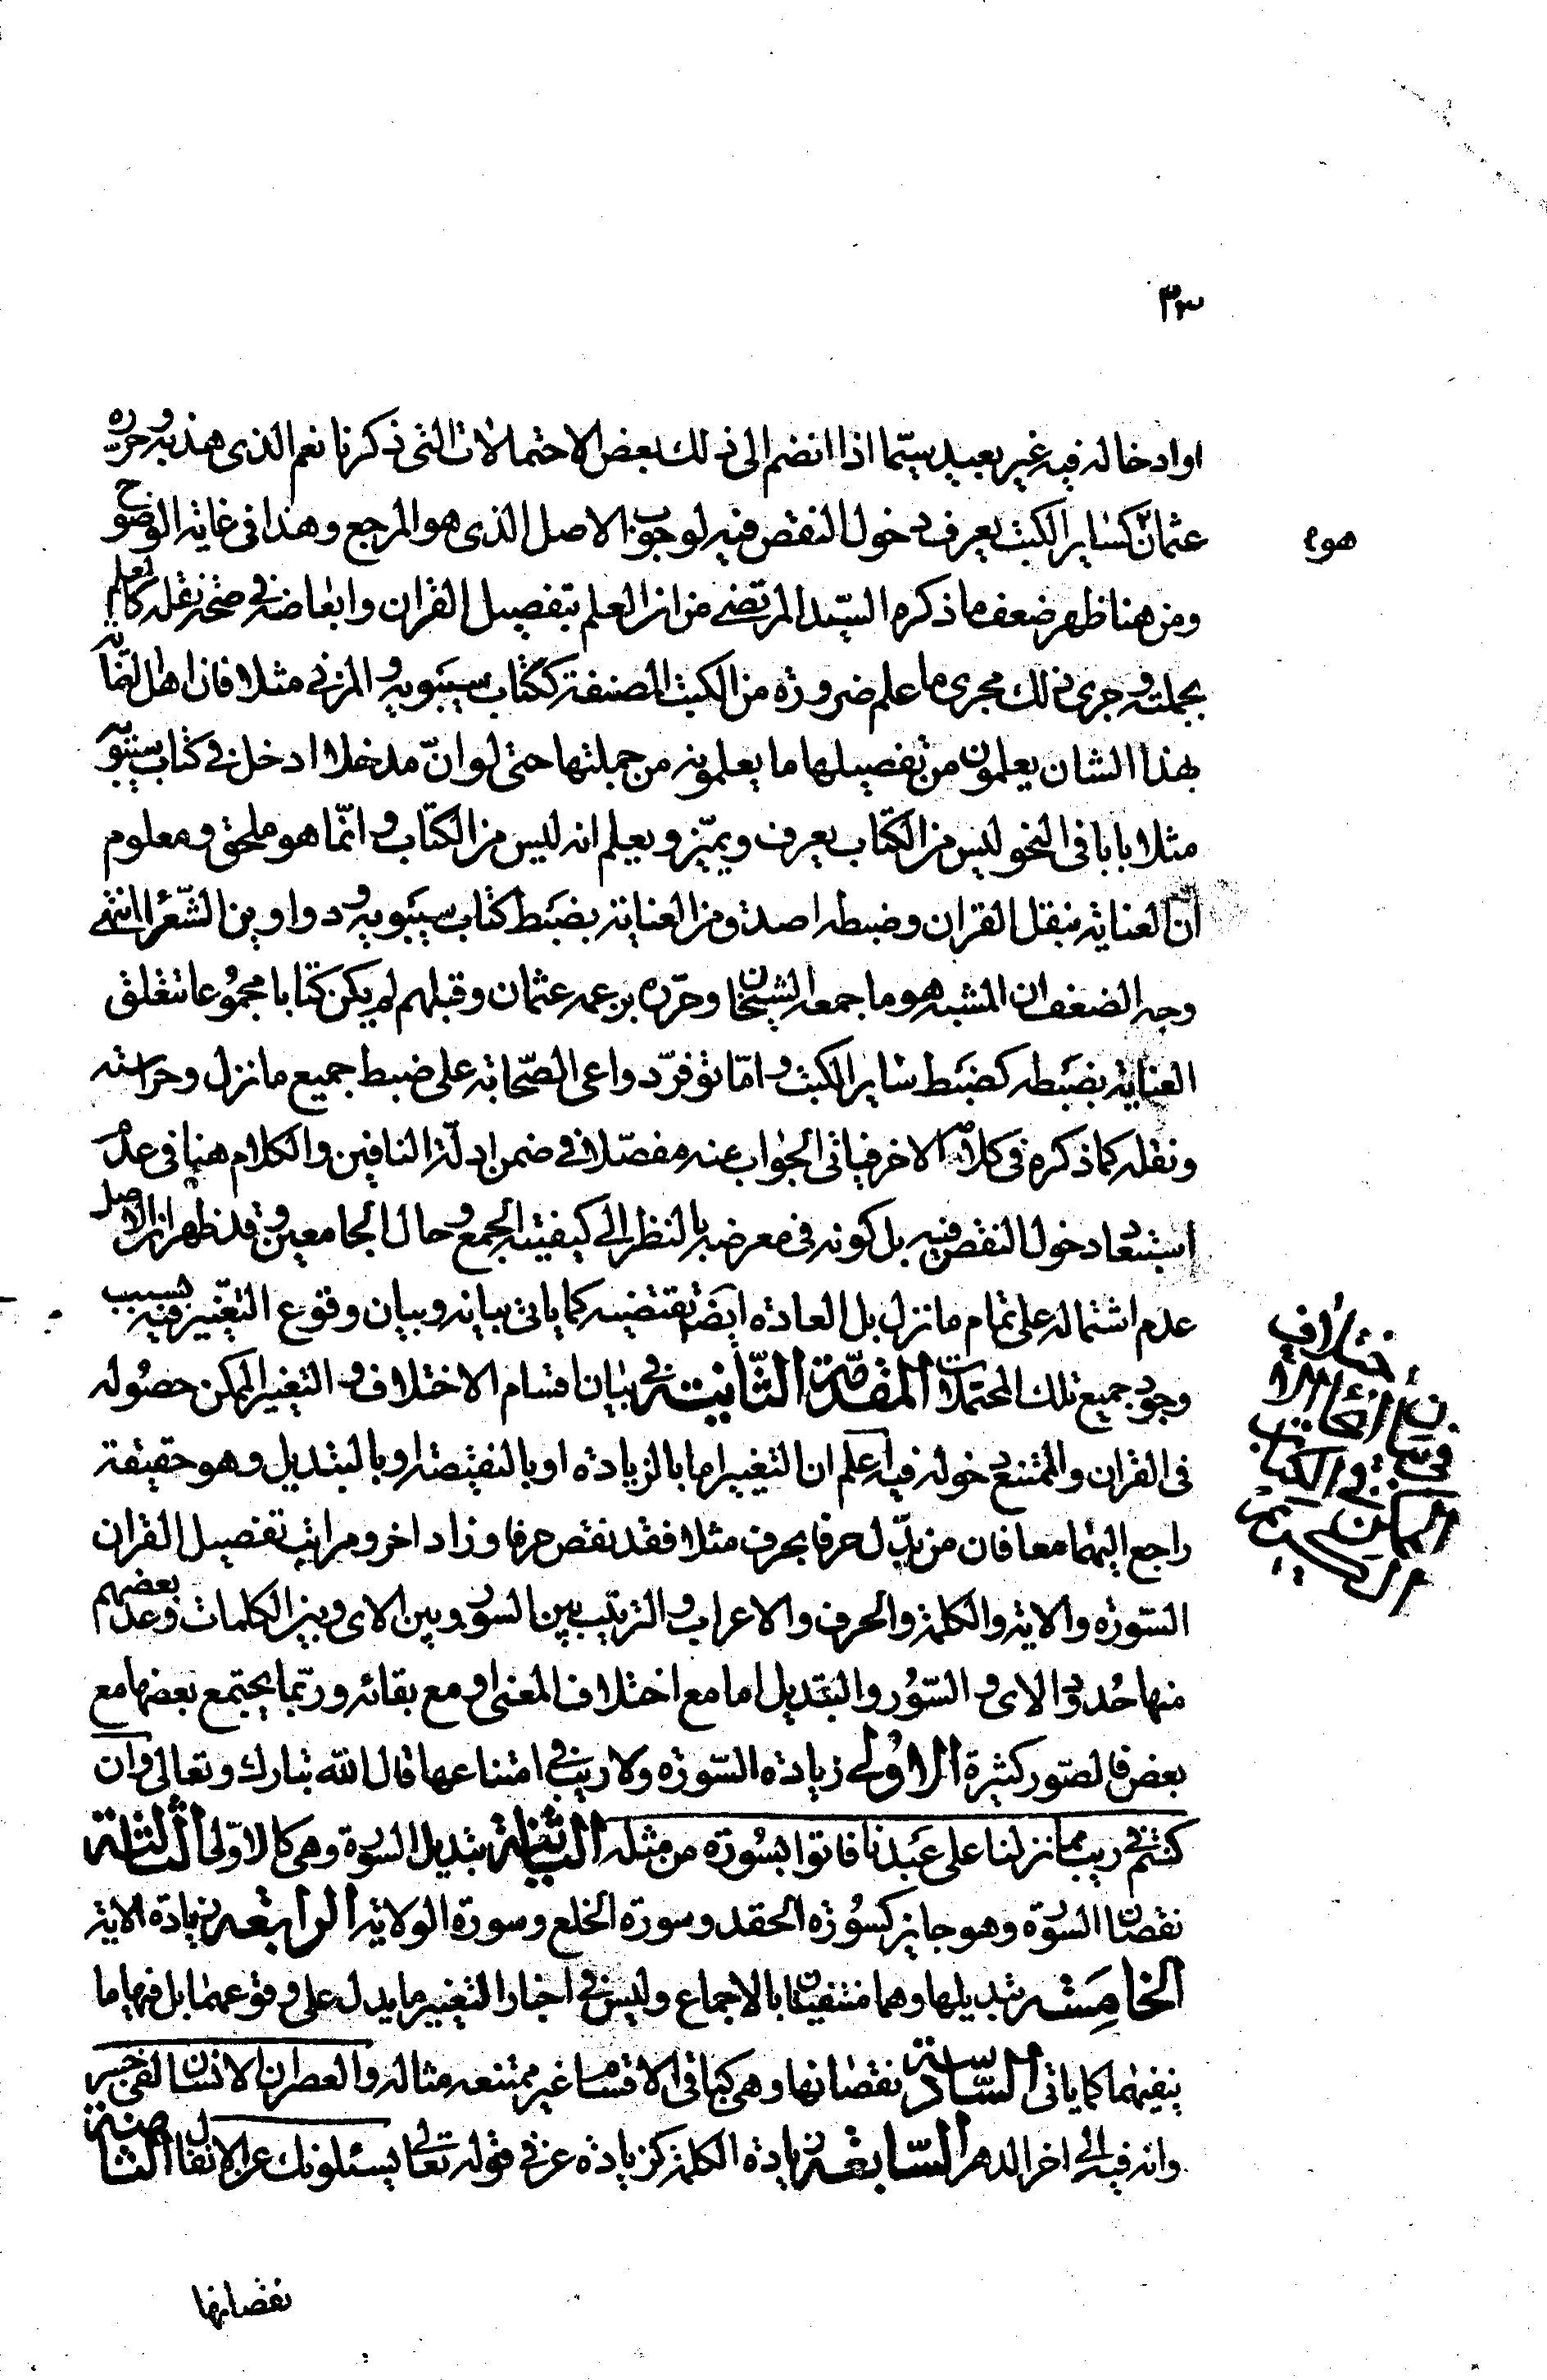 ٣٢
او ادخاله فيه غير بعيد سيّما اذا انضم الى ذلك بعض الاحتمالات التى ذكرنا نعم الذى هذبه وحرره
عثمان كساير الكتب يعرف دخول النقص فيه لوجود الاصل الذى هو المرجع وهذا فى غاية الوضوح
ومن هنا ظهر ضعف ما ذكره السيّد المرتضى من ان العلم بتفصيل القران وابعاضه فى صحّة نقله كالعلم
بجملته وجرى ذلك مجرى ما علم ضرورة من الكتب المصنفة ككتاب سيبويه والمزنى مثلا فان اهل العناية
بهذا الشان يعلمون من تفصيلها ما يعلمونه من جملتها حتى لو انّ مدخلا ادخل فى كتاب سيبويه
مثلا بابا فى النحو ليس من الكتاب يعرف ويميّز ويعلم انه ليس من الكتاب وانّما هو ملحق ومعلوم
انّ العناية بنقل القران وضبطه اصدق من العناية بضبط كتاب سيبويه ودواوين الشّعراء انتهى
وجه الضعف ان المشبه هو ما جمعه الشيخان وحرّره بن عمه عثمان وقبلهم لم يكن كتابا مجموعا تتعلق
العناية بضبطه كضبط ساير الكتب وامّا توفّر دواعى الصّحابة على ضبط جميع ما نزل وحراسته
ونقله كما ذكره فى كلامه الاخر فياتى الجواب عنه مفصّلا فى ضمن ادلّة النافين والكلام هنا فى عدم
استبعاد دخول النقص فيه بل كونه فى معرضه بالنظر الى كيفيّة الجمع وحال الجامعين وقد ظهر ان الاصل
عدم اشتماله على تمام ما نزل بل العادة ايضا تقتضيه كما ياتى بيانه وبيان وقوع التغيّير فيه بسبب
وجود جميع تلك المحتملات المقدّمة الثّانية فى بيان اقسام الاختلاف والتغيير الممكن حصوله
فى القران والممتنع دخوله فيه اعلم ان التغيير اما بالزيادة او بالنقيصة او بالتبديل وهو حقيقة
راجع اليهما معا فان من بدّل حرفا بحرف مثلا فقد نقص حرفا وزاد اخر ومراتب تفصيل القران
السّورة والاية والكلمة والحرف والاعراب والترتيب بين السور وبين الاى وبين الكلمات وعدّ بعضهم
منها حدود الاى والسّور والتبديل اما مع اختلاف المعنى او مع بقائه وربّما يجتمع بعضها مع
بعض فالصّور كثيرة الاولى زيادة السّورة ولا ريب فى امتناعها قال الله تبارك وتعالى وان
كنتم فى ريب مما نزلنا على عبدنا فاتوا بسورة من مثله الثّانية تبديل السورة وهى كالاولى الثّالثة
نقصان السورة وهو جايز كسورة الحقد وسورة الخلع وسورة الولاية الرابعة زيادة الاية
الخامسة تبديلها وهما منتفيتان بالاجماع وليس فى اخبار التغيير ما يدل على وقوعهما بل فيها ما
ينفيهما كما ياتى السّادسة نقصانها وهى كباقى الاقسام غير ممتنعة مثاله والعصر ان الانسان لفى خسر
وانه فيه الى اخر الدهر السّابعة زيادة الكلمة كزيادة عن فى قوله تعالى يسئلونك عن الانفال الثّامنة
نقصانها